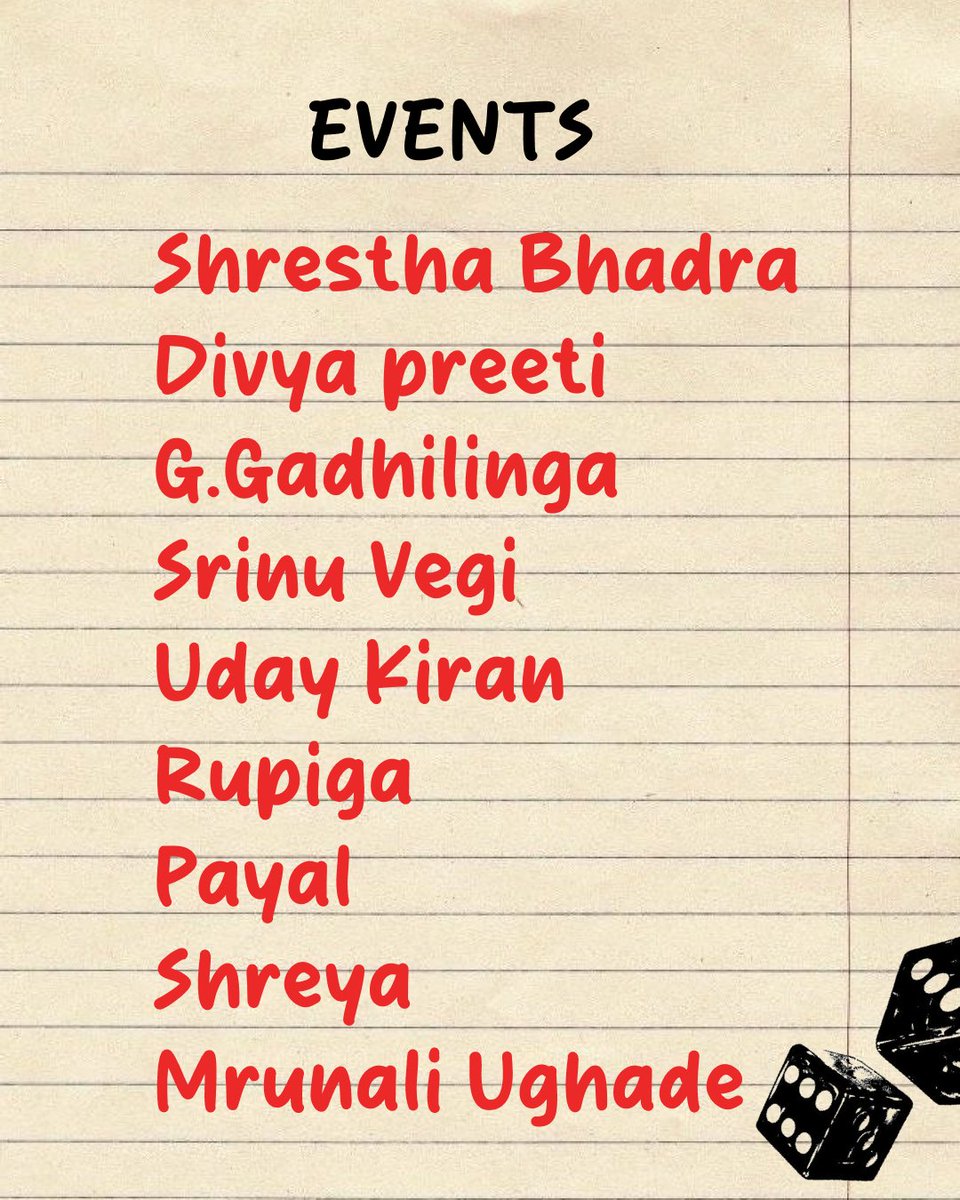 EVENTS
Shrestha Bhadra
Divya preeti
G.Gadhilinga
Srinu Vegi
Uday Kiran
Rupiga
Payal
Shreya
Mrunali Ughade